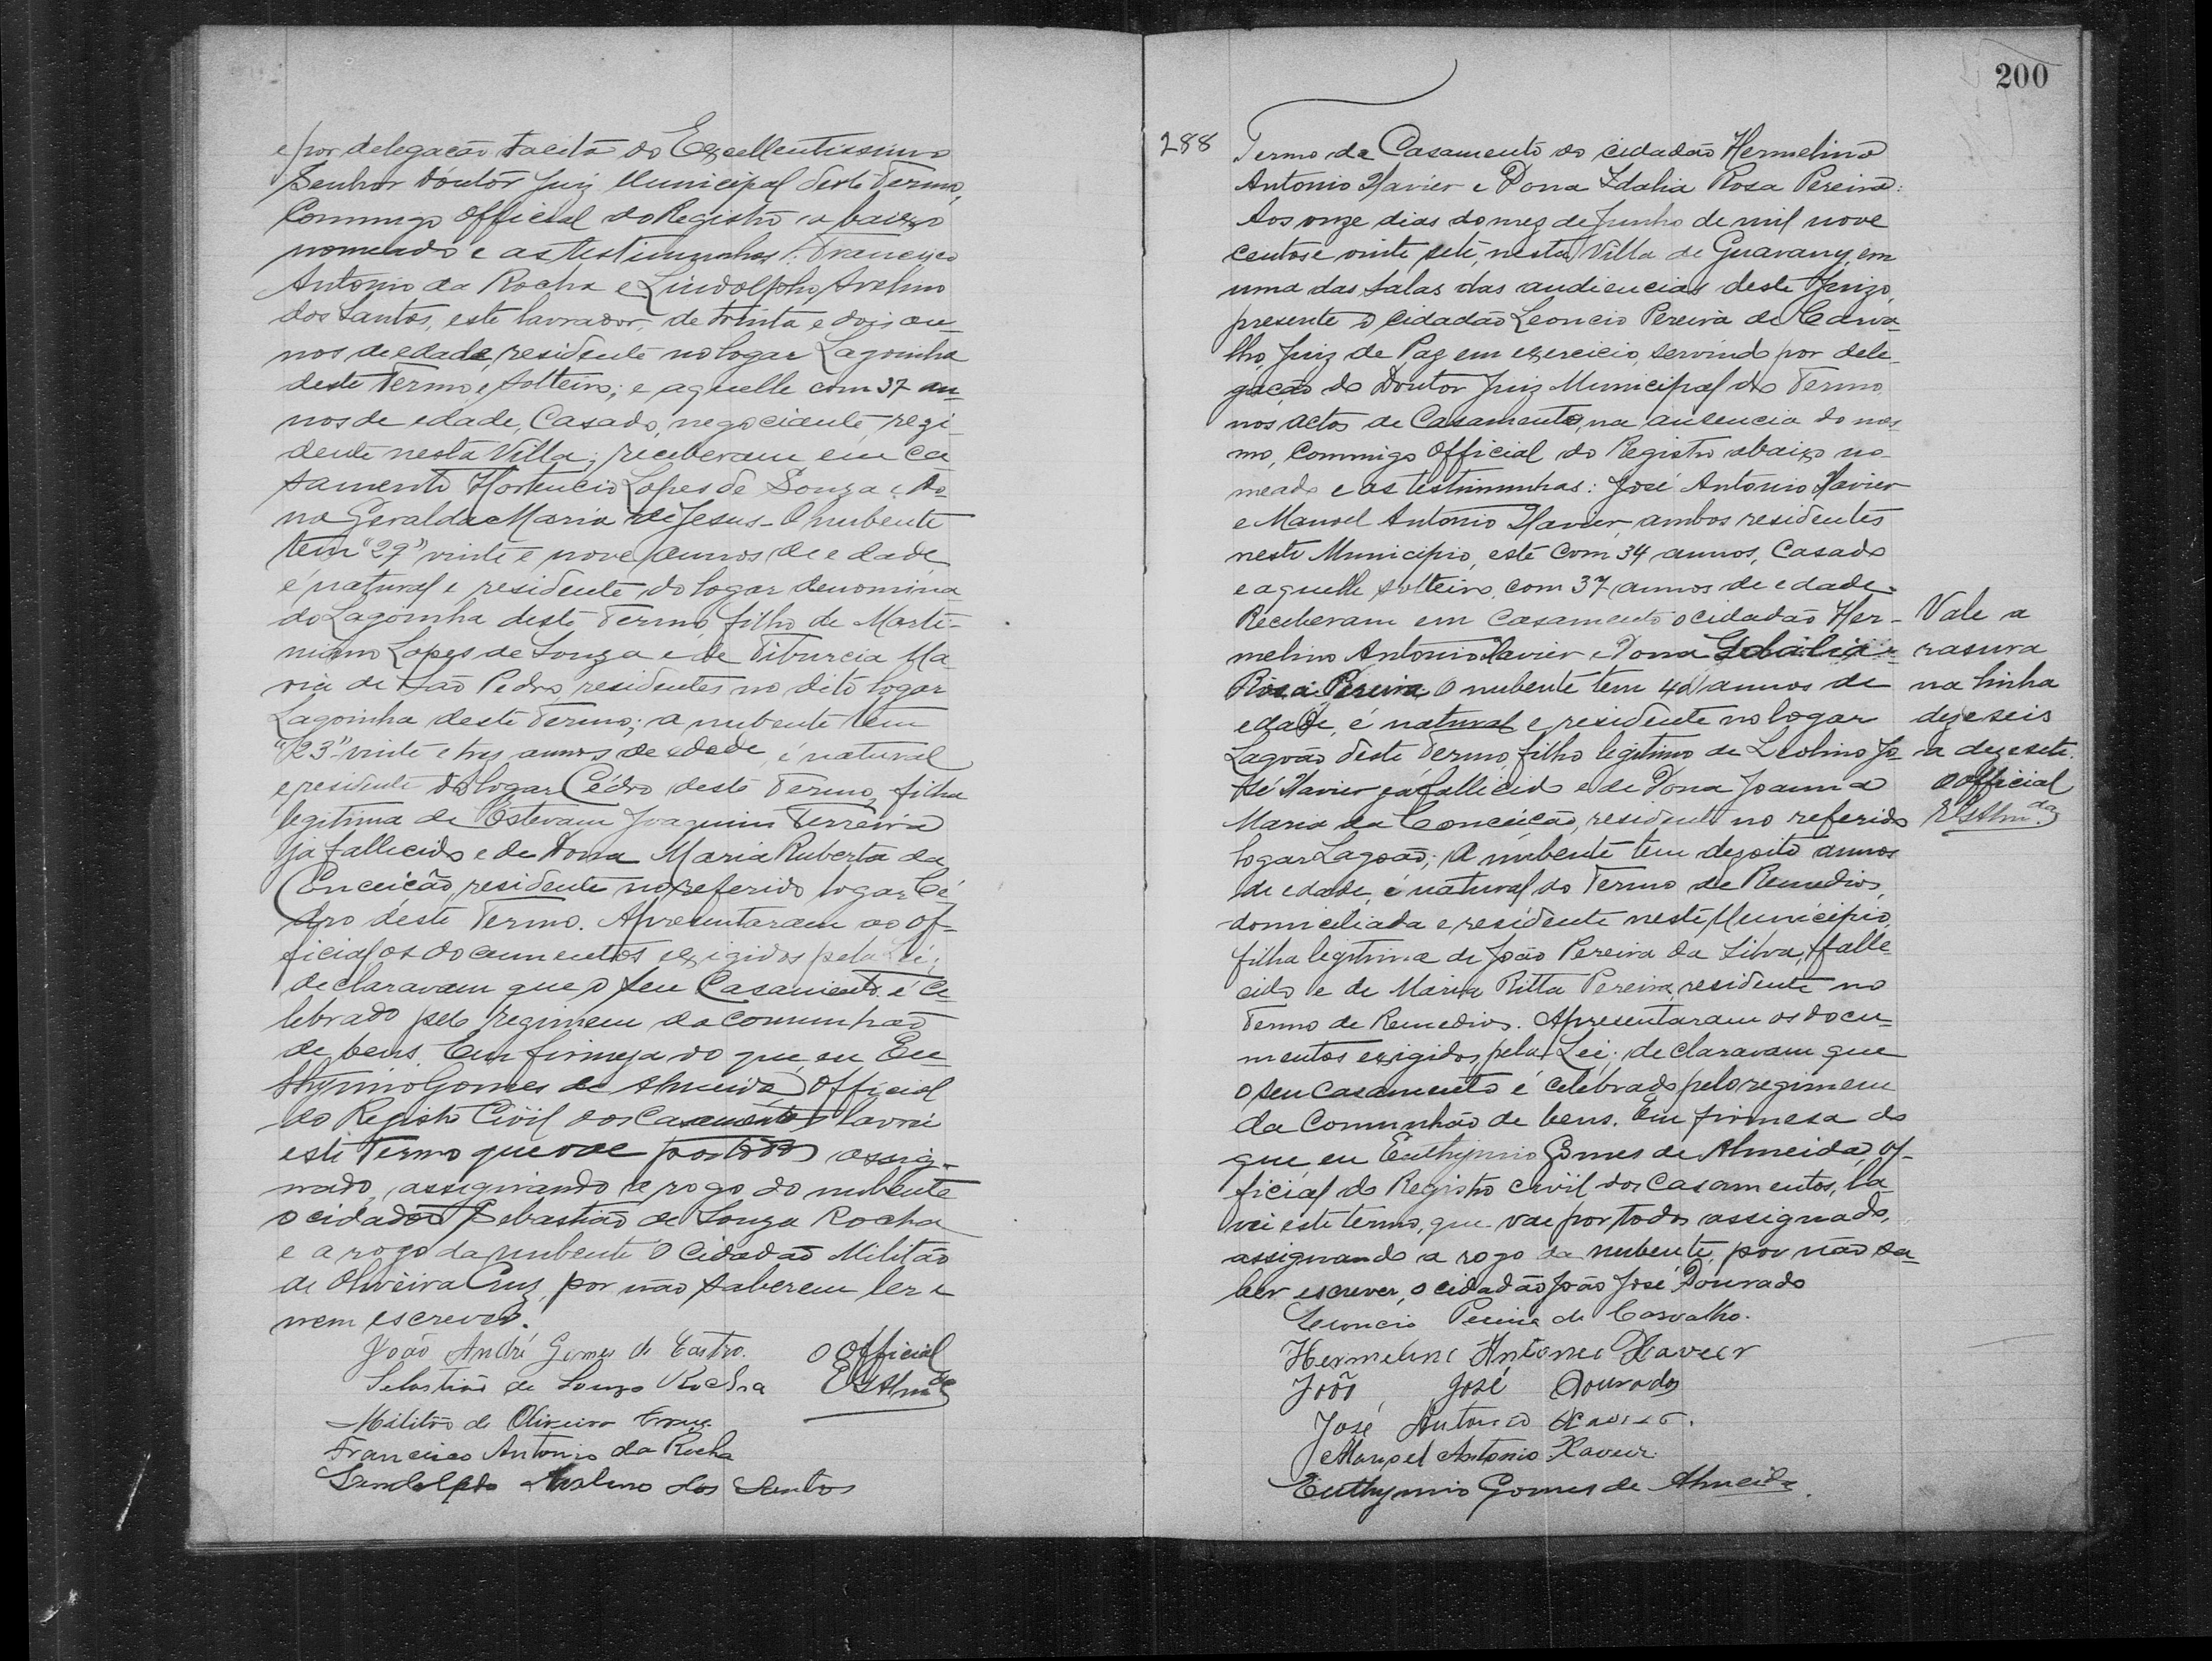 e por delegacão tacita do Excellentissimo
Senhor Doutor Juiz Municipal deste Termo,
Commigo Official do Registro a baixo
nomeado e as testimunhas: Francisco
Antonio da Rocha e Lindolpho Avelino
dos Santos, este lavrador, de trinta e dois an-
nos de edade, residente no logar Lagoinha
deste Termo e solteiro; e aquelle com 37 an-
nos de edade, Casado, negociante, rezi-
dente nesta Villa; receberam em ca
samento Hortencio Lopes de Souza e Do-
na Geralda Maria de Jesus - O nubente
tem "29" vinte e nove annos de edade
é natural e residente do logar denomina-
do Lagoinha deste Termo, filho de Marti-
niano Lopes de Souza e de Tiburcia Ma-
ria de São Pedro, residentes no dito logar
Lagoinha deste Termo; a nubente tem
"23" vinte e tres annos de edade, é natural
e residente do logar Cédro deste Termo, filha
legitima de Estevam Joaquim Ferreira
já fallecido e de Dona Maria Ruberta da
Conceição, residente no referido logar Cé-
dro deste Termo. Apresentaram ao of-
ficial os documentos exigidos pela Lei;
declaravam que o seu Casamento é ce-
lebrado pelo regimem da comunhão
de bens. Em firmeza do que, eu Eu-
thymio Gomes de Almeida Official
do Registro Civil dos Casamentos lavrei
este Termo que vae por todos assig-
nado, assignando a rogo do nubente
o cidadão Sebastião de Souza Rocha
e a rogo da nubente o Cidadão Militão
de Oliveira Cruz, por não saberem ler e
nem escrever.
João André Gomes de Castro. O Official
Sebastião de Souza Rocha EGAlmda
Militão de Oliveira Cruz
Francisco Antonio da Rocha
Lindolpho Avelino dos Santos
200
288 Termo de Casamento do cidadão Hermelino
Antonio Xavier e Dona Idalia Rosa Pereira:
Aos onze dias do mez de Junho de mil nove
centos e vinte sete, nesta Villa de Guarany, em
uma das salas das audiencias deste Juizo,
presente o cidadão Leoncio Pereira de Carva-
lho, Juiz de Paz em exercicio, servindo por dele-
gação do Doutor Juiz Municipal do Termo,
nos actos de Casamento, na ausencia do mes-
mo, Commigo Official do Registro abaixo no-
meado e as testimunhas: José Antonio Xavier
e Manoel Antonio Xavier, ambos residentes
neste Municipio, este com 34 annos, Casado
e aquelle solteiro, com 37 annos de edade.
Receberam em Casamento o cidadão Her-
melino Antonio Xavier e Dona Idalia
Rosa Pereira O nubente tem 40 annos de
edade, é natural e residente no logar
Lagoão deste Termo, filho legitimo de Leolino Jo-
sé Xavier já fallecido e de Dona Joanna
Maria da Conceição, residente no referido
logar Lagoão; A nubente tem dezoito annos
de edade, é natural do Termo de Remedios,
domiciliada e residente neste Municipio,
filha legitima de João Pereira da Silva, falle-
cido e de Maria Ritta Pereira, residente no
Termo de Remedios. Apresentaram os docu-
mentos exigidos pela Lei; declaravam que
o seu casamento é celebrado pelo regimem
da Comunhão de bens. Em firmesa do
que, eu Euthymio Gomes de Almeida, of-
ficial do Registro civil dos Casamentos, la-
vrei este termo, que vae por todos assignado,
assignando a rogo da nubente, por não sa-
ber escrever, o cidadão João José Dourado
Leoncio Pereira de Carvalho.
Hermelino Antonio Xavier
João José Dourado
José Antonio Xavier.
Manoel Antonio Xavier.
Euthymio Gomes de Almeida.
Vale a
rasura
na linha
dezeseis
a dezesete.
O Official
EGAlmda